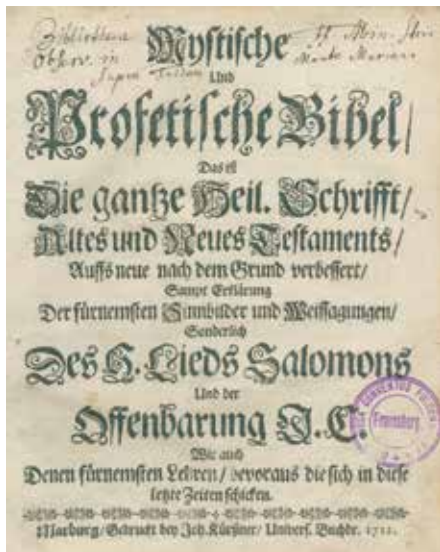 Bibliotheca
Observ. in
Supra
ff. Min. Stri
Monte Mariano
Mystische
Und
Profetische Bibel/
Das ist
Die gantze Heil. Schrifft/
Altes und Neues Testaments/
Auffs neue nach dem Grund verbessert/
Sampt Erklärung
Der fürnemsten Sinnbilder und Weissagungen/
Sonderlich
Des H. Lieds Salomons
Und der
Offenbarung J. C.
Wie auch
Denen fürnemsten Lehren/ bevoraus die sich in diese
letzte Zeiten schicken.
Marburg/ Gedruckt bey Joh. Kürßner/ Univers. Buchdr. 1712.
CONVENTUS